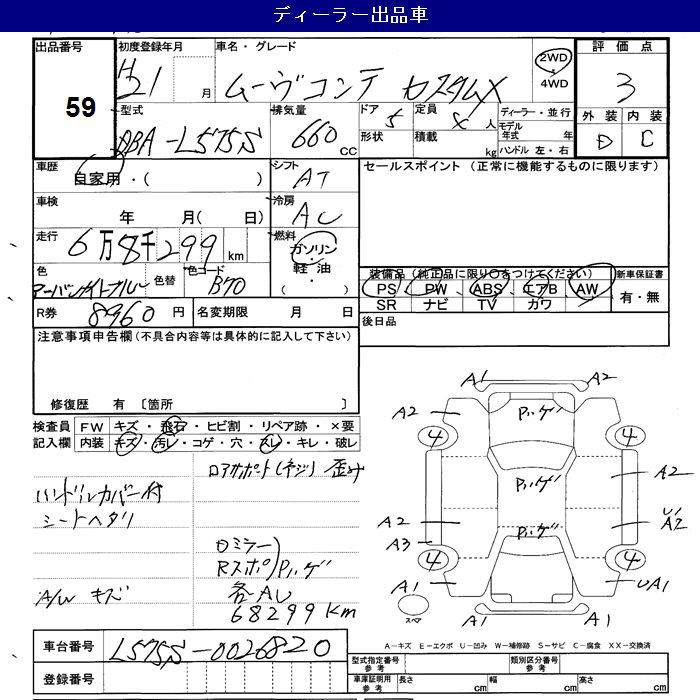 ディーラー出品車
出品番号 59
初度登録年月 H21 月
車名・グレード ムーヴコンテ カスタムX
2WD・4WD
評価点 3
外装 D 内装 C
型式 DBA-L575S
排気量 660 CC
ドア 5
形状
定員 人
積載 kg
ディーラー・並行
モデル年式 年
ハンドル 左・右
車歴 自家用・( )
シフト AT
セールスポイント (正常に機能するものに限ります)
車検 年 月( 日)
冷房 AC
走行 6万8千299 km
燃料 ガソリン・軽油・( )
色
色替
色コード B70
装備品 (純正品に限り○をつけてください)
新車保証書 有・無
PS PW ABS エアB AW
SR ナビ TV カワ
R券 8960 円
名変期限 月 日
後日品
注意事項申告欄(不具合内容等は具体的に記入して下さい)
修復歴 有 〔箇所 〕
検査員記入欄
FW キズ・飛石・ヒビ割・リペア跡・×要
内装 キズ・汚レ・コゲ・穴・スレ・キレ・破レ
ロアサポート(ネジ)歪み
ハンドルカバー付
シートヘタリ
Dミラー
Rスポ
A/W キズ
68299Km
A1 A2
A2
4 4
A2
A2
A2
A3
4 4
A1 UA1
A1 A1
スペア
A-キズ E-エクボ U-凹み W-補修跡 S-サビ C-腐食 XX-交換済
車台番号 L575S-0026820
登録番号
型式指定番号 参考
類別区分番号 参考
車庫証明用 参考
長さ cm 幅 cm 高さ cm